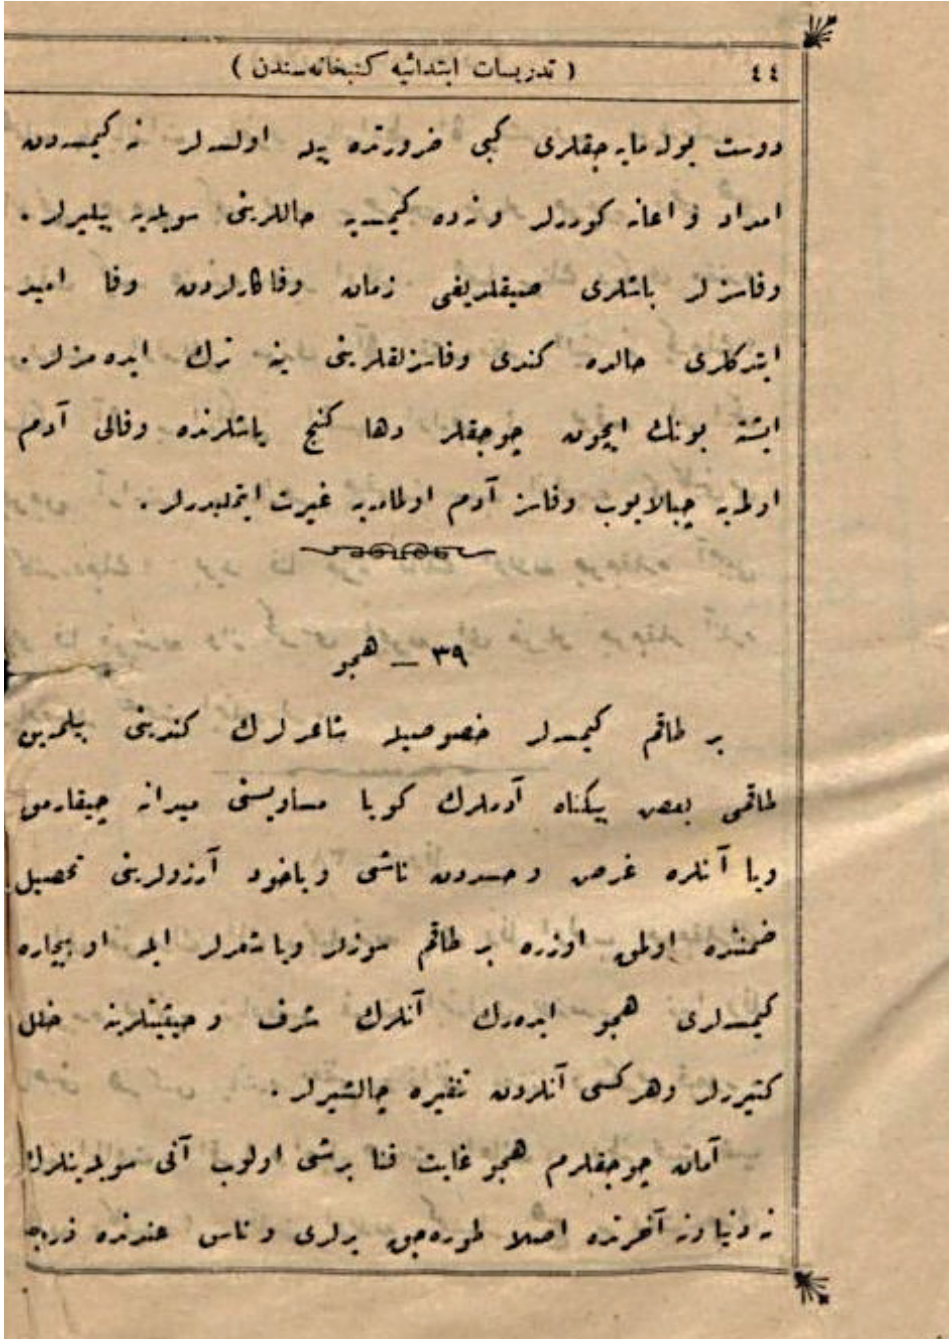 ٤٤ ( تدریسات ابتدائیه کتبخانه‌سندن )
دوست بولمایه‌جقلری کبی ضرورتده بیله اولسه‌لر نه کیمسه‌دن
امداد و اعانه کوررلر و نه‌ده کیمسه‌یه حاللرینی سویلیه بیلیرلر .
وفاسزلر باشلری صیقلدیغی زمان وفاکارلردن وفا امید
ایتدکلری حالده کندی وفاسزلقلرینی ینه ترك ایده‌مزلر .
ایشته بونك ایچون چوجقلر دها کنج یاشلرنده وفالی آدم
اولمغه چبالایوب وفاسز آدم اولمامغه غیرت ایتملیدرلر .
٣٩ — هجو
بر طاقم کیمسه‌لر خصوصیله شاعرلرك کندینی بیلمین
طاقمی بعض بیکناه آدملرك کویا مساویسنی میدانه چیقارمق
ویا آنلره غرض و حسددن ناشی ویاخود آرزولرینی تحصیل
ضمننده اولمق اوزره بر طاقم سوزلر ویا شعرلر ایله او بیچاره
کیمسه‌لری هجو ایده‌رك آنلرك شرف و حیثیتلرینه خلل
کتیررلر وهرکسی آنلردن تنفیره چالشیرلر .
آمان چوجقلرم هجو غایت فنا برشی اولوب آنی سویلینلرك
نه دنیا ونه آخرتده اصلا طوره‌جق یرلری و ناس عندنده ذره‌جه